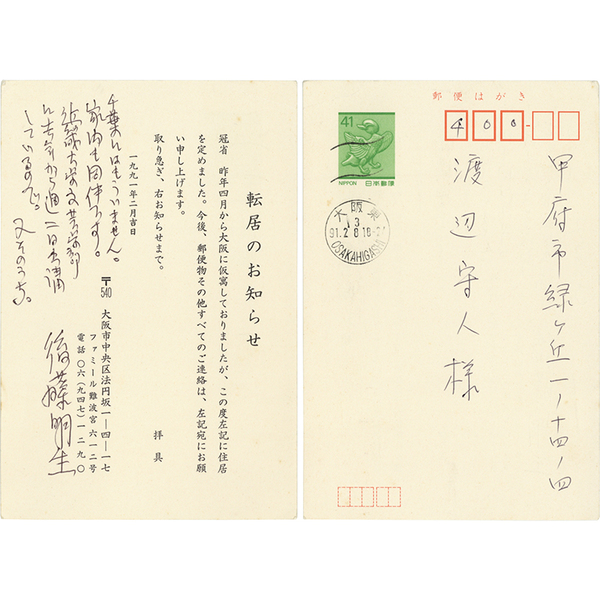 転居のお知らせ
冠省 昨年四月から大阪に仮寓しておりましたが、この度左記に住居
を定めました。今後、郵便物その他すべてのご連絡は、左記宛にお願
い申し上げます。
取り急ぎ、右お知らせまで。
拝具
一九九一年二月吉日
〒540 大阪市中央区法円坂一―四―一七
ファミール難波宮六一二号
電話〇六(九四七)一二九〇
後藤明生
千葉にはもういません。
家内も同伴です。
近畿大学文芸学部
に去年から週二日出講
しているのです。
又そのうち。
郵便はがき
400-
41
NIPPON 日本郵便
大阪東
3
91.2.8 18-24
OSAKAHIGASHI
甲府市緑ヶ丘一ノ十四ノ四
渡辺守人様